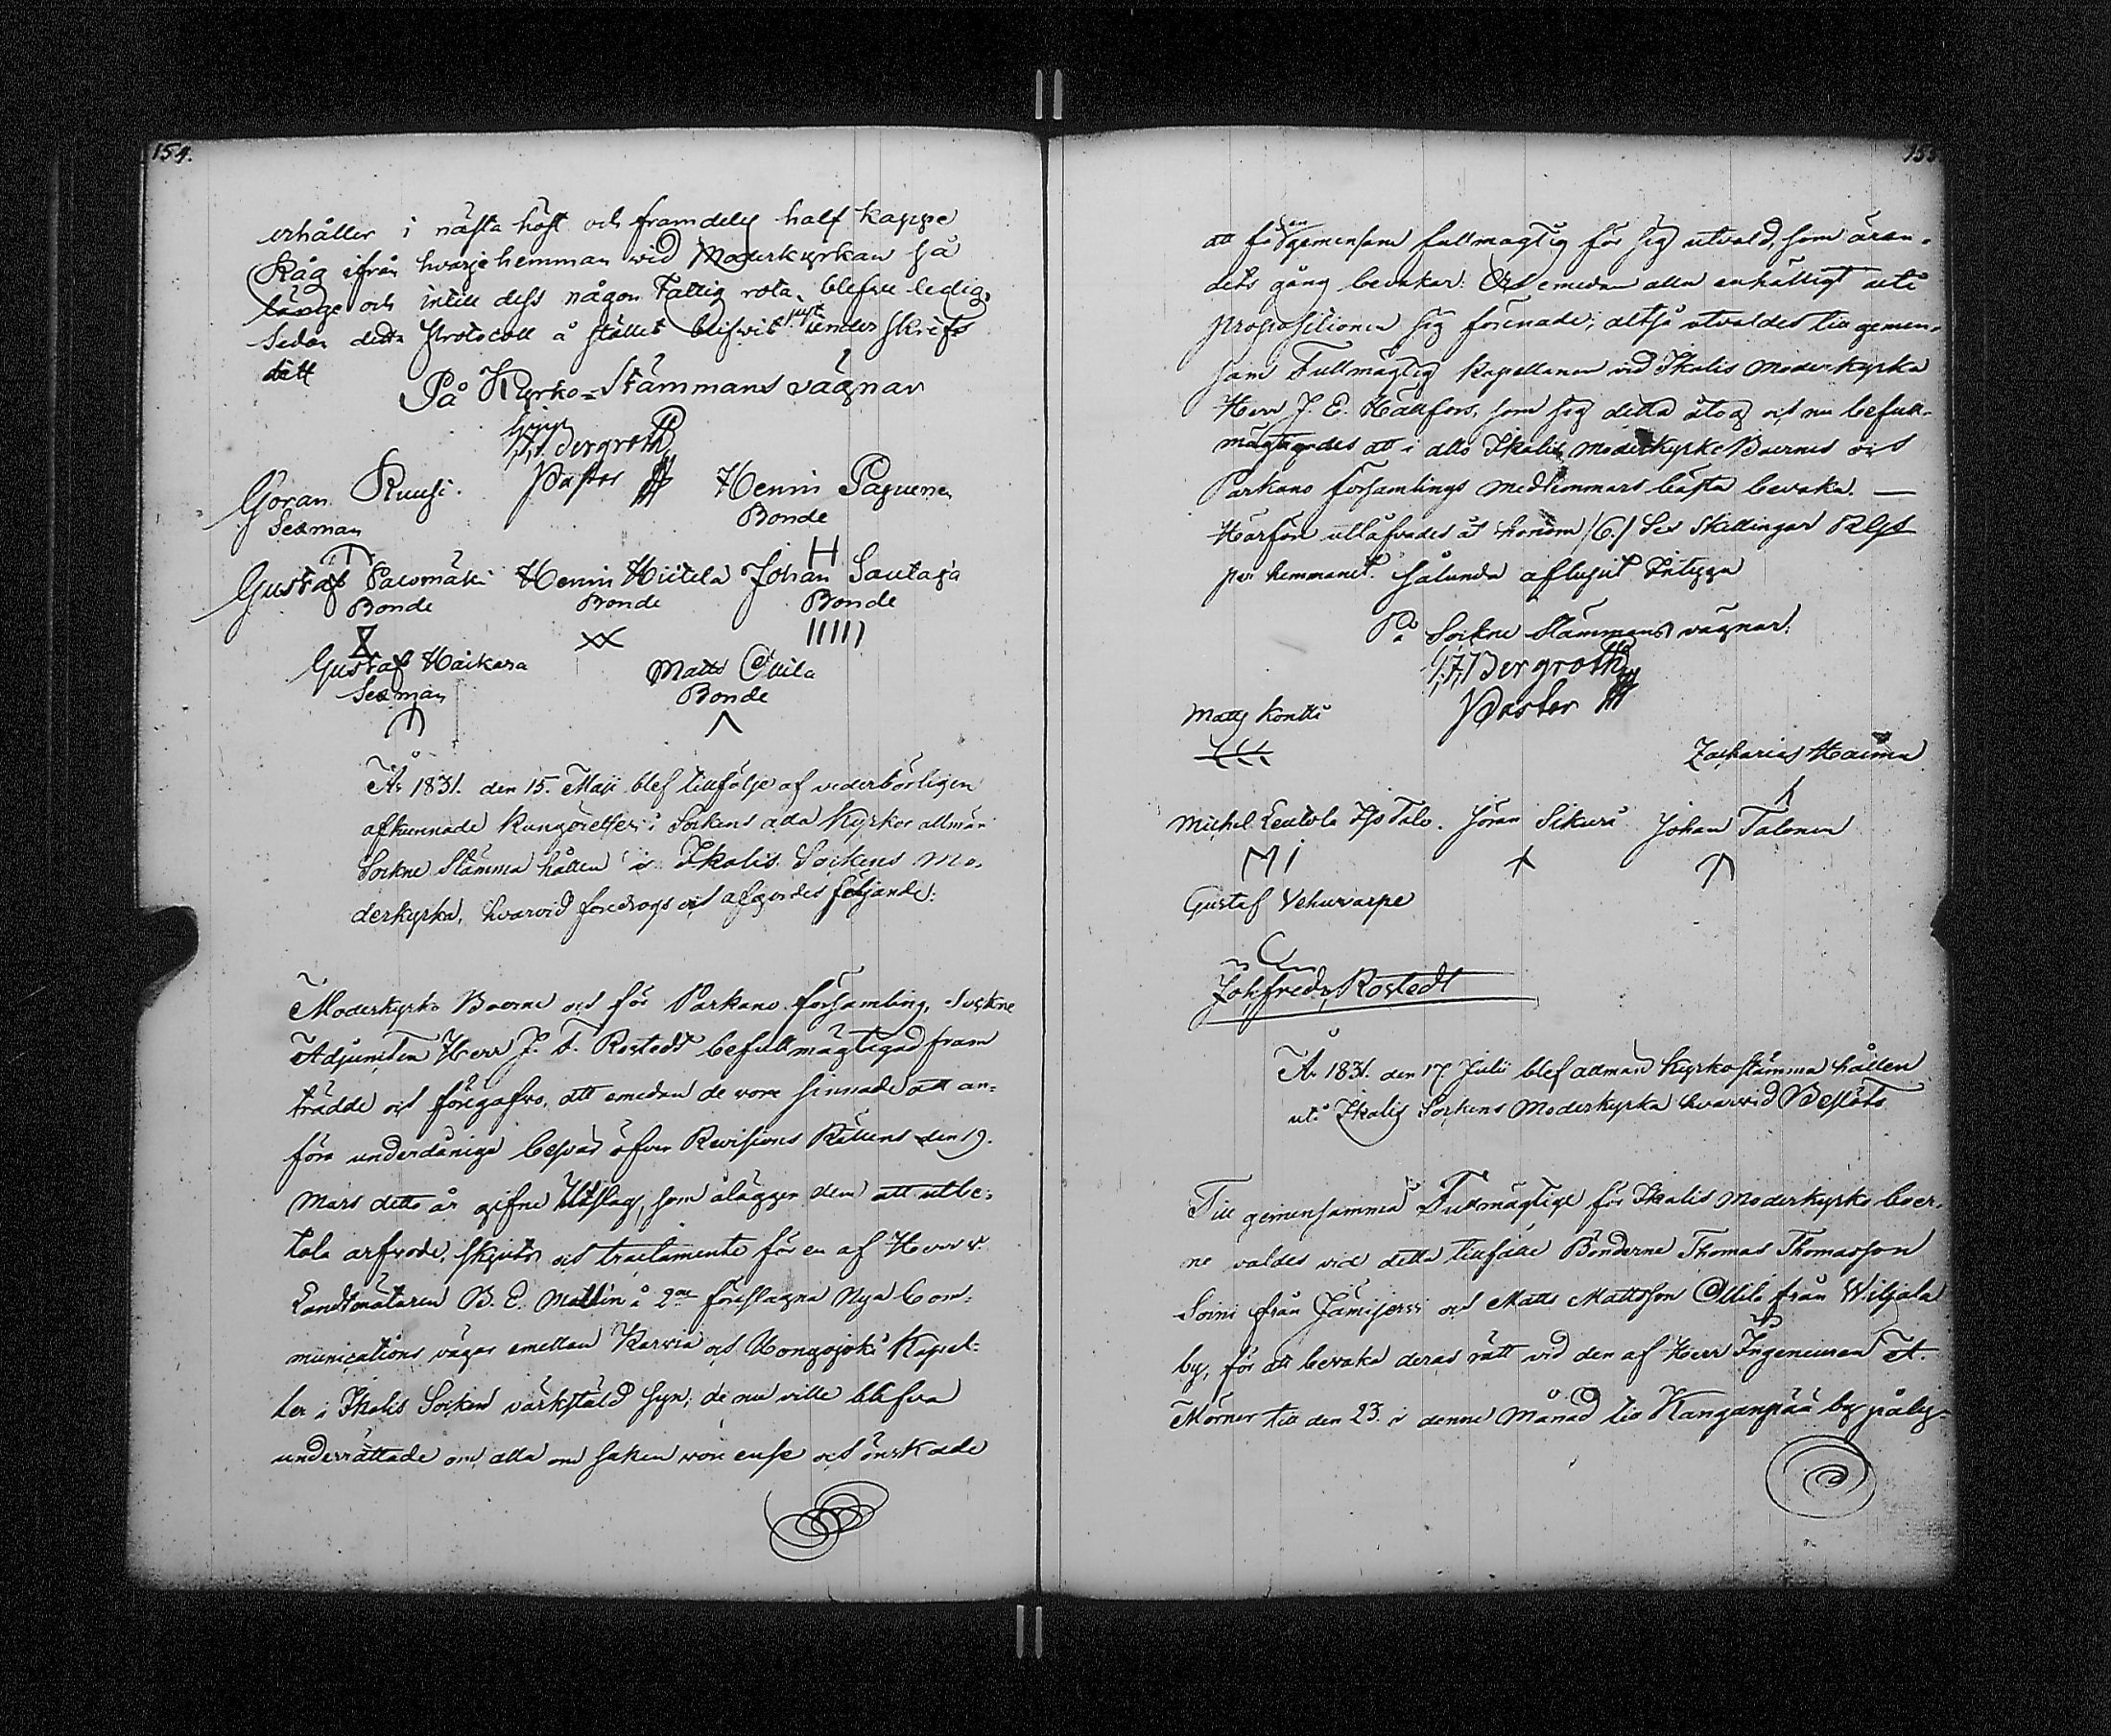 154.
erhåller i nästa höst och framdeles half kappe
Råg ifrån hvarje hemman wid Moderkyrkan så
länge och intill dess någon Fattig rota blefve ledig.
Sedan detta Protocoll å stället blifvit just underskrif-
vitt
På Kyrko-Stämmans vägnar
Bergroth
Pastor
Göran Ruusi.
Sexman
Henric Papunen
Bonde
Gustaf Palomäki Henric Hiitela Johan Sautaja
Bonde Bonde Bonde
Gustaf Haikara Matts Ollila
Sexman Bonde
År 1831. den 15. Maji blef tillfölje af vederbörligen
afkunnade Kungörelser i Sockens alla Kyrkor allmän
Sockne Stämma hållen i Ikalis Sockens Mo-
derkyrka, hvarvid foredrogs och afgjordes följande:
Moderkyrko Boerne och för Parkano församling, Sockne
Adjuncten Herr J. F. Rostedt befullmägtigad fram
trädde och föregafvo, att emedan de vore sinnade att an-
föra underdåniga besvär öfver Revisions Rättens den 19.
Mars detta år gifne Utslag, som ålägger dem att utbe-
tala arfvode, skjuts och tractamente för en af Herr v.
Landtmätaren B. E. Mallin å 2ne föreslagna Nya Com-
munications vägar emellan Karvia och Hongojoki Kapel-
ler i Ikalis Socken värkstäld syn; de nu ville blifva
underrättade om alla om saken voro ense och önskade
155
att få en gemensam fullmägtig för sig utvald, som ären-
dets gång bevakar. Och emedan alla enhälligt uti
propositionen sig förenade; altså utvaldes till gemen-
sam Fullmägtig Kapellanen vid Ikalis Moderkyrka
Herr J. E. Hällfors, som sig detta åtog och nu befull-
mägtigades att i allo Ikalis Moderkyrko Boernes och
Parkano församlings medlemmars bästa bevaka. —
Härför utlåfvades åt honom /6./ Sex Skillingar Rgs
per hemmanet. Sålunda aflupit betyga
På Sockne Stämmans vägnar:
Bergroth
Pastor
Matts Kontti
Zacharias Haima
Michel Leutola Iso Talo. Jöran Sikuri Johan Talonen
Gustaf Vehuvarpe
Joh, Fredr, Rostedt
År 1831. den 17 Julii blef allmän Kyrkostämma hållen
uti Ikalis Sockens Moderkyrka hvarvid Beslöts
Till gemensamma Fullmägtige för Ikalis Moderkyrko boer-
ne valdes vid detta tillfälle Bönderne Thomas Thomasson
Soini från Jämijervi och Matts Mattsson Ollila från Wiljala
by, för att bevaka deras rätt vid den af Herr Ingenieuren A.
Mörner till den 23. i denne Månad till Kanganpää by pålys-